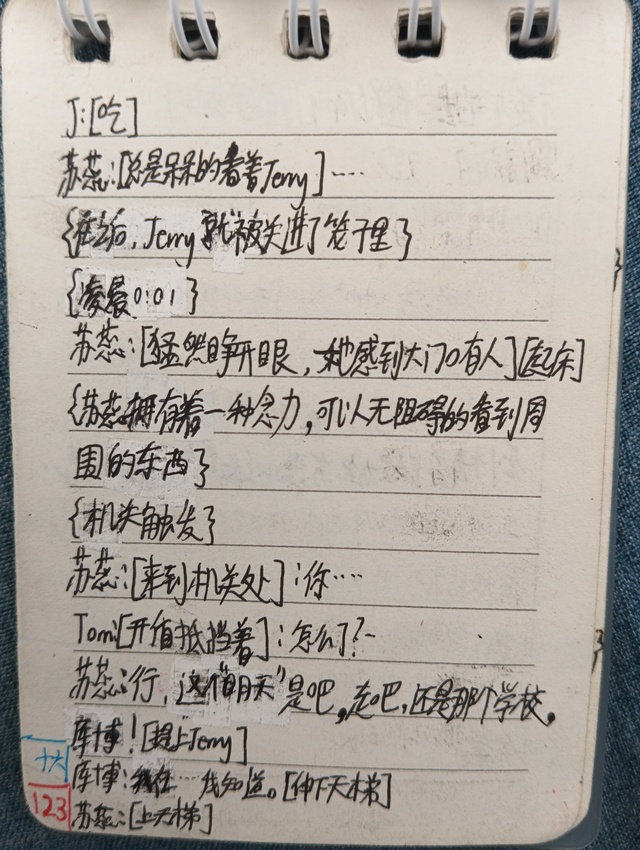 J:[吃]
苏蕊:[总是呆呆的看着Jerry]……
{最后,Jerry就被关进了笼子里}
{凌晨0:01}
苏蕊:[猛然睁开眼,她感到大门口有人][起床]
{苏蕊拥有着一种念力,可以无阻碍的看到周
围的东西}
{机关触发}
苏蕊:[来到机关处]:你……
Tom:[开盾抵挡着]:怎么了?~
苏蕊:行,这个"明天"是吧,走吧,还是那个学校,
库博![提上Jerry]
库博:我在……我知道。[伸下天梯]
苏蕊:[上天梯]
十六
123